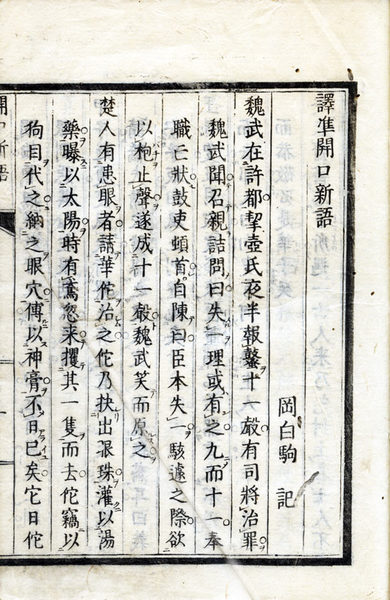 譯準開口新語
岡白駒 記
魏武在許都挈壺氏夜半報鼜十一㲉有司將治罪
魏武聞召親詰問曰失一理或有之九而十一奉
職亡狀鼓吏頓首自陳曰臣本失一駭遽之際欲
以枹止聲遂成十一㲉魏武笑而原之
楚人有患眼者請華佗治之佗乃抉出眼珠灌以湯
藥曝以太陽時有鳶忽来攫其一隻而去佗竊以
狗目代之納之眼穴傳以神膏不日已矣它日佗
開口新語